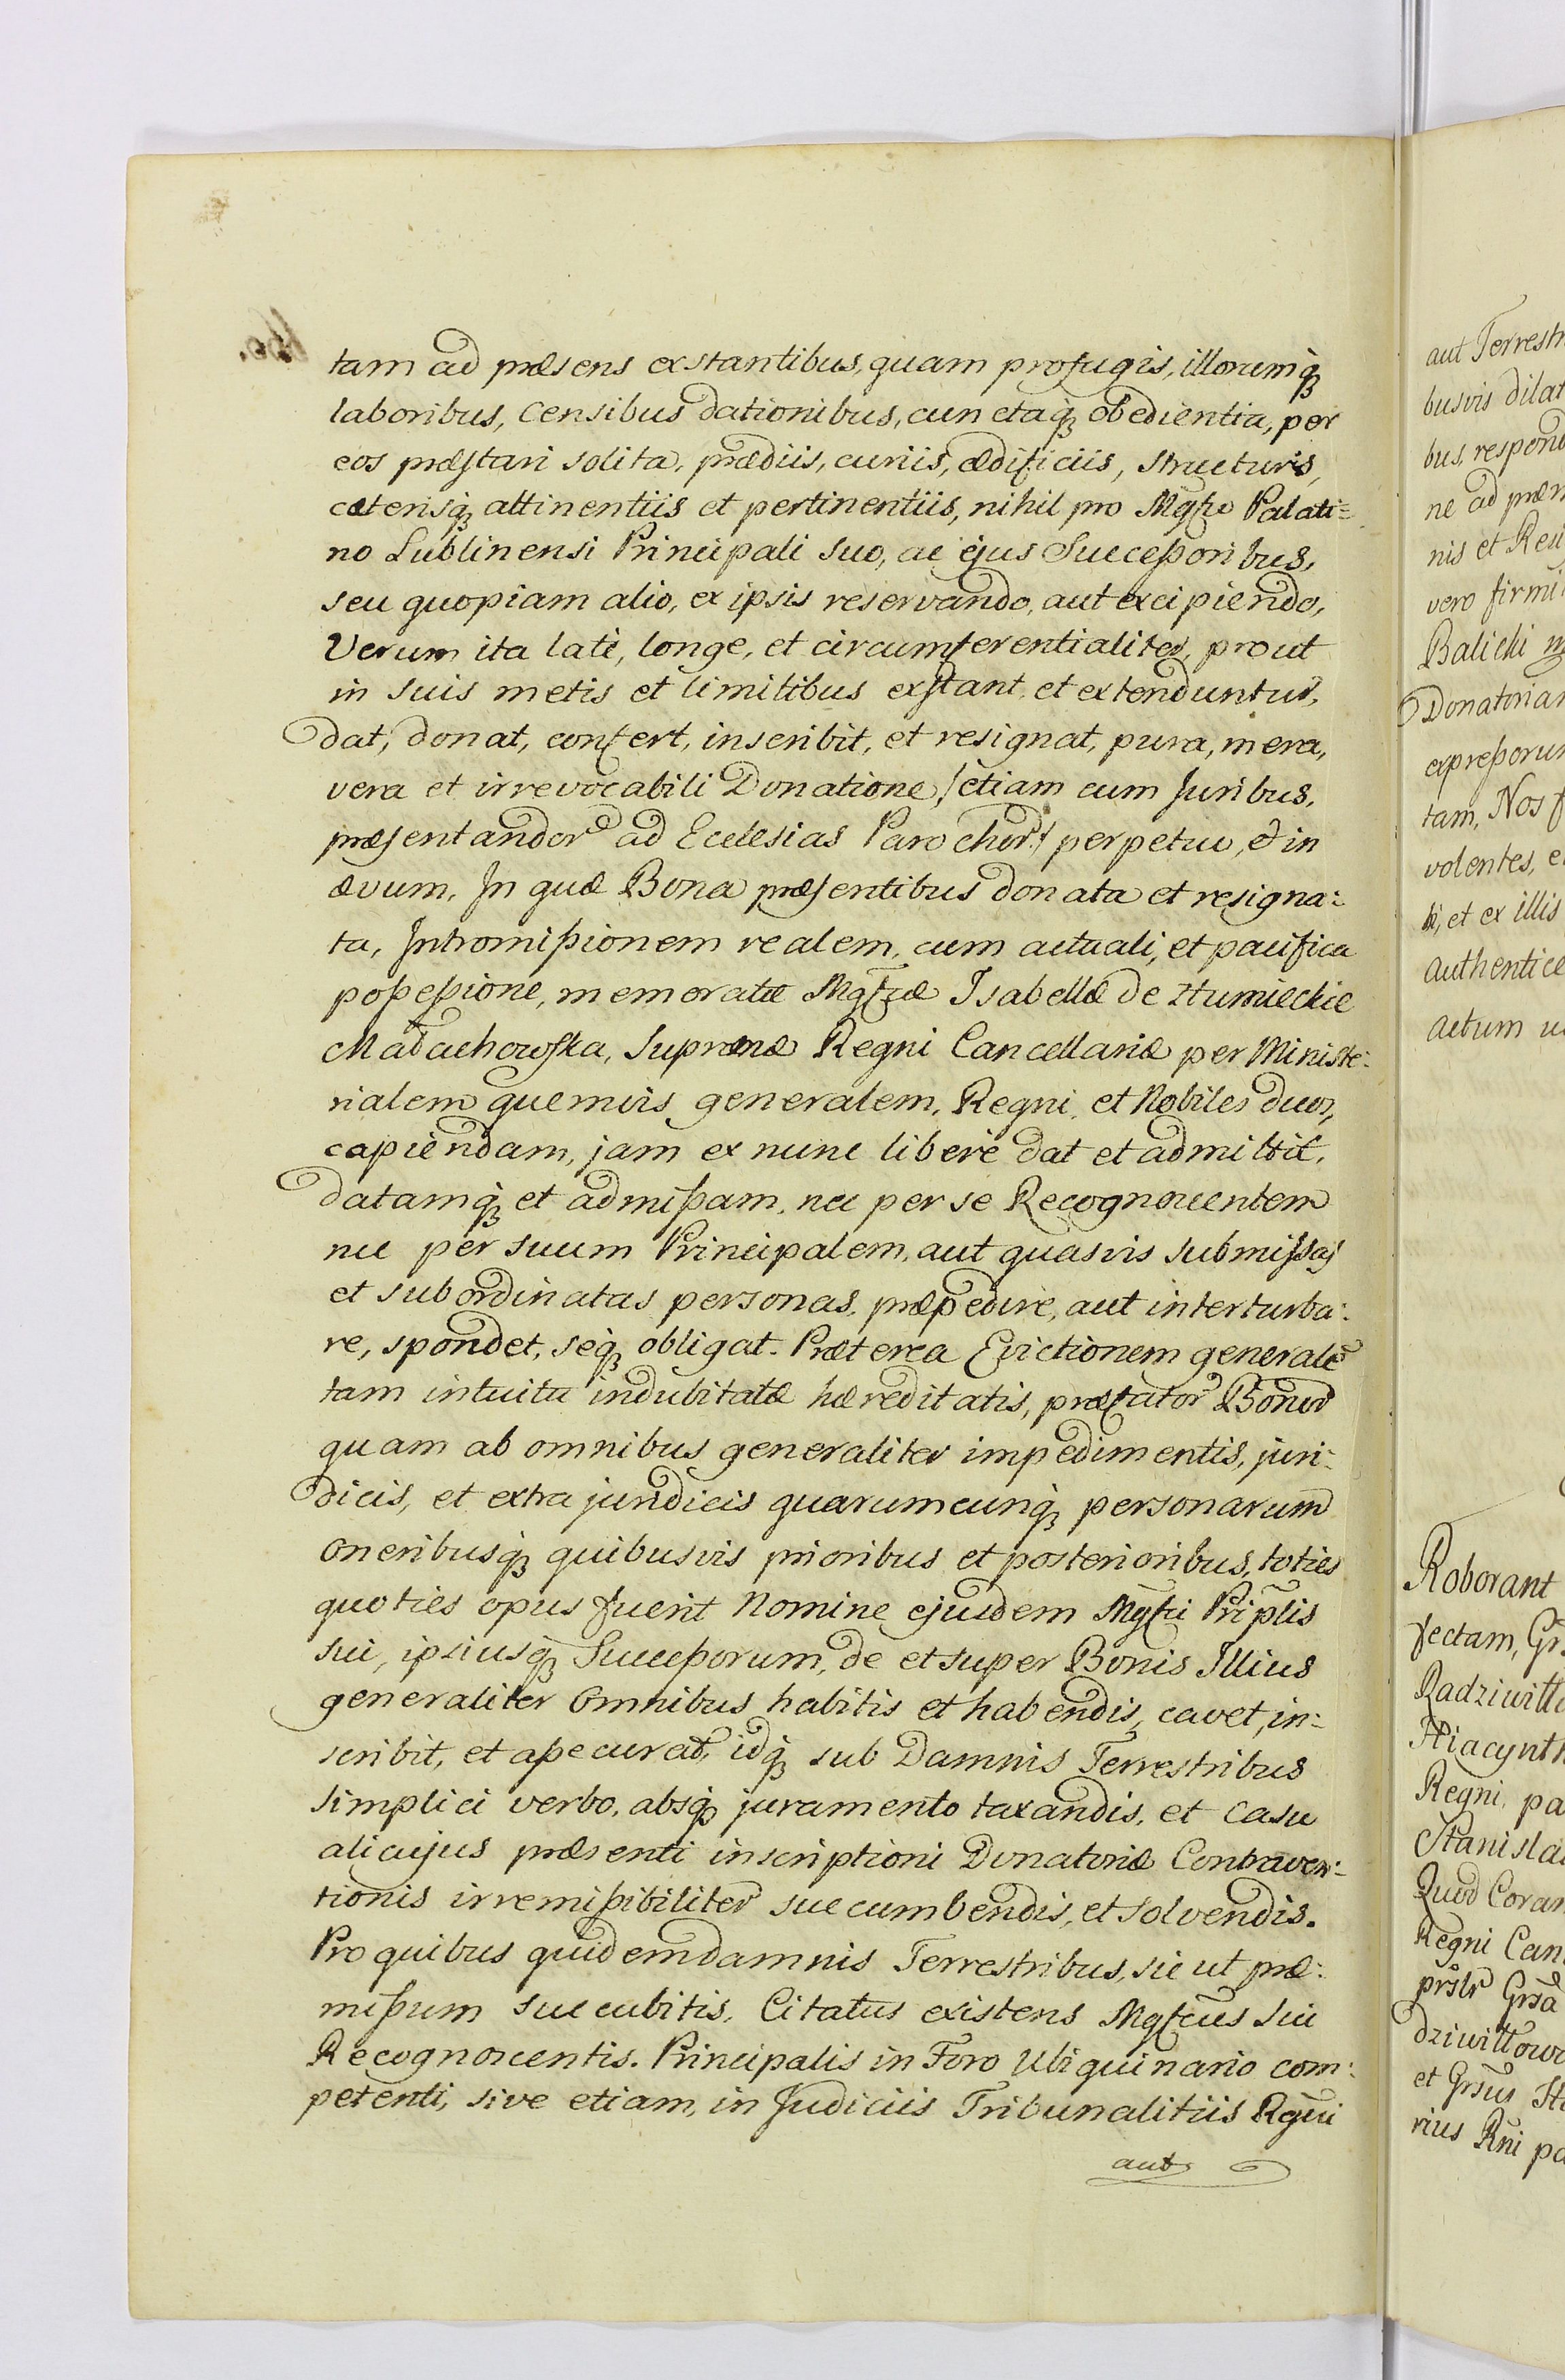 tam ad præsens exstantibus, quam profugis, illorumq́ꝫ
laboribus, Censibus dationibus, cunctaq́ꝫ obedientia, per
eos præstari solita, prædiis, curiis, ædificiis, structuris,
cæterisq́ꝫ attinentiis et pertinentiis, nihil pro Mgfco Palati=
no Lublinensi Principali suo, ac ejus Successoribus,
seu quopiam alio, ex ipsis reservando, aut excipiendo,
Verum ita latè, longe, et circumferentialiter, prout
in suis metis et limitibus exstant et extenduntur,
dat, donat, confert, inscribit, et resignat, pura, mera,
vera et irrevocabili Donatione /etiam cum Juribus,
præsentandor ad Ecclesias Parochor/ perpetuo, & in
ævum. In quæ Bona præsentibus donata et resigna:
ta, Intromissionem realem, cum actuali, et pacifica
possessione, memoratæ Mgfcæ Isabellæ de Humieckie
Małachowska, Supremæ Regni Cancellariæ per Ministe:
rialem quemvis generalem, Regni et Nobiles duos,
capiendam, jam ex nunc liberè dat et admittit,
datamq́ꝫ et admissam, nec per se Recognoscentem
nec per suum Principalem, aut quasvis submissas
et subordinatas personas, præpedire, aut interturba:
re, spondet, seq́ꝫ obligat. Præterea Evictionem generalẽ
tam intuitu indubitatæ hæreditatis, præfator Bonor
quam ab omnibus generaliter impedimentis, juri:
dicis, et extrajuridicis quarumcunq́ꝫ personarum
Oneribusq́ꝫ quibusvis prioribus et posterioribus, toties
quoties opus fuerit Nomine ejusdem Mgfci Pripl̃is
sui, ipsiusq́ꝫ Successorum, de et super Bonis Illius
generaliter Omnibus habitis et habendis, cavet, in:
scribit, et assecurat, idq́ꝫ sub Damnis Terrestribus
simplici verbo, absq́ꝫ juramento taxandis, et Casu
alicujus præsenti inscriptioni Donatoriæ Contraven:
tionis irremissibiliter succumbendis, et solvendis.
Pro quibus quidem damnis Terrestribus, sic ut præ:
missum succubitis, Citatus existens Mgfcus sui
Recognoscentis. Principalis in Foro Ubiquinario com:
petenti, sive etiam, in Judiciis Tribunalitiis Rgni
aut
aut Terrestr
busvis dilat
bus, respond
ne ad præm
nis et Reu
vero firmi
Balicki
Donatoriam
expressorum
tam, Nos
volentes, e
et ex illis
Authentice
Actum
Roborant
fectam, Gr
Radziwiłł
Hiacynth
Regni, pa
Stanisla
Quod Coram
Regni Can
prslr Grsa
dziwiłłow
et Grsus
rius Rni pa